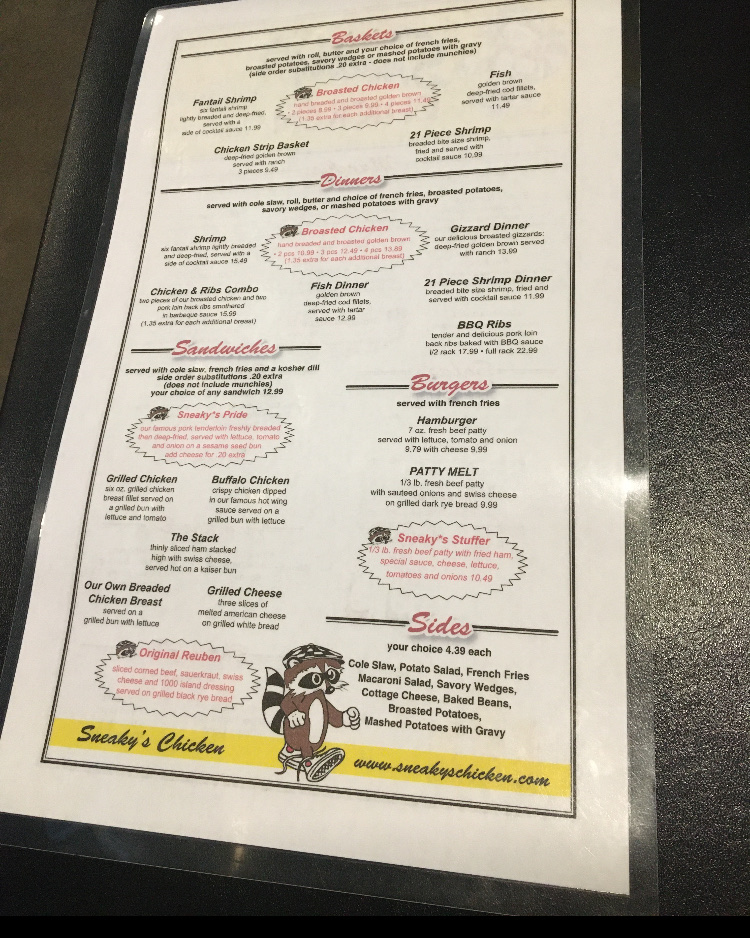 Baskets
served with roll, butter and your choice of french fries,
broasted potatoes, savory wedges or mashed potatoes with gravy
(side order substitutions .20 extra - does not include munchies)
Fantail Shrimp
six fantail shrimp
lightly breaded and deep-fried,
served with a
side of cocktail sauce 11.99
Broasted Chicken
hand breaded and broasted golden brown
• 2 pieces 8.99 • 3 pieces 9.99 • 4 pieces 11.49
(1.35 extra for each additional breast)
Fish
golden brown
deep-fried cod fillets,
served with tartar sauce
11.49
Chicken Strip Basket
deep-fried golden brown
served with ranch
3 pieces 9.49
21 Piece Shrimp
breaded bite size shrimp,
fried and served with
cocktail sauce 10.99
Dinners
served with cole slaw, roll, butter and choice of french fries, broasted potatoes,
savory wedges, or mashed potatoes with gravy
Shrimp
six fantail shrimp lightly breaded
and deep-fried, served with a
side of cocktail sauce 15.49
Broasted Chicken
hand breaded and broasted golden brown
• 2 pcs 10.99 • 3 pcs 12.49 • 4 pcs 13.89
(1.35 extra for each additional breast)
Gizzard Dinner
our delicious broasted gizzards;
deep-fried golden brown served
with ranch 13.99
Chicken & Ribs Combo
two pieces of our broasted chicken and two
pork loin back ribs smothered
in barbeque sauce 15.99
(1.35 extra for each additional breast)
Fish Dinner
golden brown
deep-fried cod fillets,
served with tartar
sauce 12.99
21 Piece Shrimp Dinner
breaded bite size shrimp, fried and
served with cocktail sauce 11.99
BBQ Ribs
tender and delicious pork loin
back ribs baked with BBQ sauce
1/2 rack 17.99 • full rack 22.99
Sandwiches
served with cole slaw, french fries and a kosher dill
side order substitutions .20 extra
(does not include munchies)
your choice of any sandwich 12.99
Sneaky"s Pride
our famous pork tenderloin freshly breaded
then deep-fried, served with lettuce, tomato
and onion on a sesame seed bun
add cheese for .20 extra
Grilled Chicken
six oz. grilled chicken
breast fillet served on
a grilled bun with
lettuce and tomato
Buffalo Chicken
crispy chicken dipped
in our famous hot wing
sauce served on a
grilled bun with lettuce
The Stack
thinly sliced ham stacked
high with swiss cheese,
served hot on a kaiser bun
Our Own Breaded
Chicken Breast
served on a
grilled bun with lettuce
Grilled Cheese
three slices of
melted american cheese
on grilled white bread
Original Reuben
sliced corned beef, sauerkraut, swiss
cheese and 1000 island dressing
served on grilled black rye bread
Burgers
served with french fries
Hamburger
7 oz. fresh beef patty
served with lettuce, tomato and onion
9.79 with cheese 9.99
PATTY MELT
1/3 lb. fresh beef patty
with sauteed onions and swiss cheese
on grilled dark rye bread 9.99
Sneaky"s Stuffer
1/3 lb. fresh beef patty with fried ham,
special sauce, cheese, lettuce,
tomatoes and onions 10.49
Sides
your choice 4.39 each
Cole Slaw, Potato Salad, French Fries
Macaroni Salad, Savory Wedges,
Cottage Cheese, Baked Beans,
Broasted Potatoes,
Mashed Potatoes with Gravy
Sneaky's Chicken
www.sneakyschicken.com